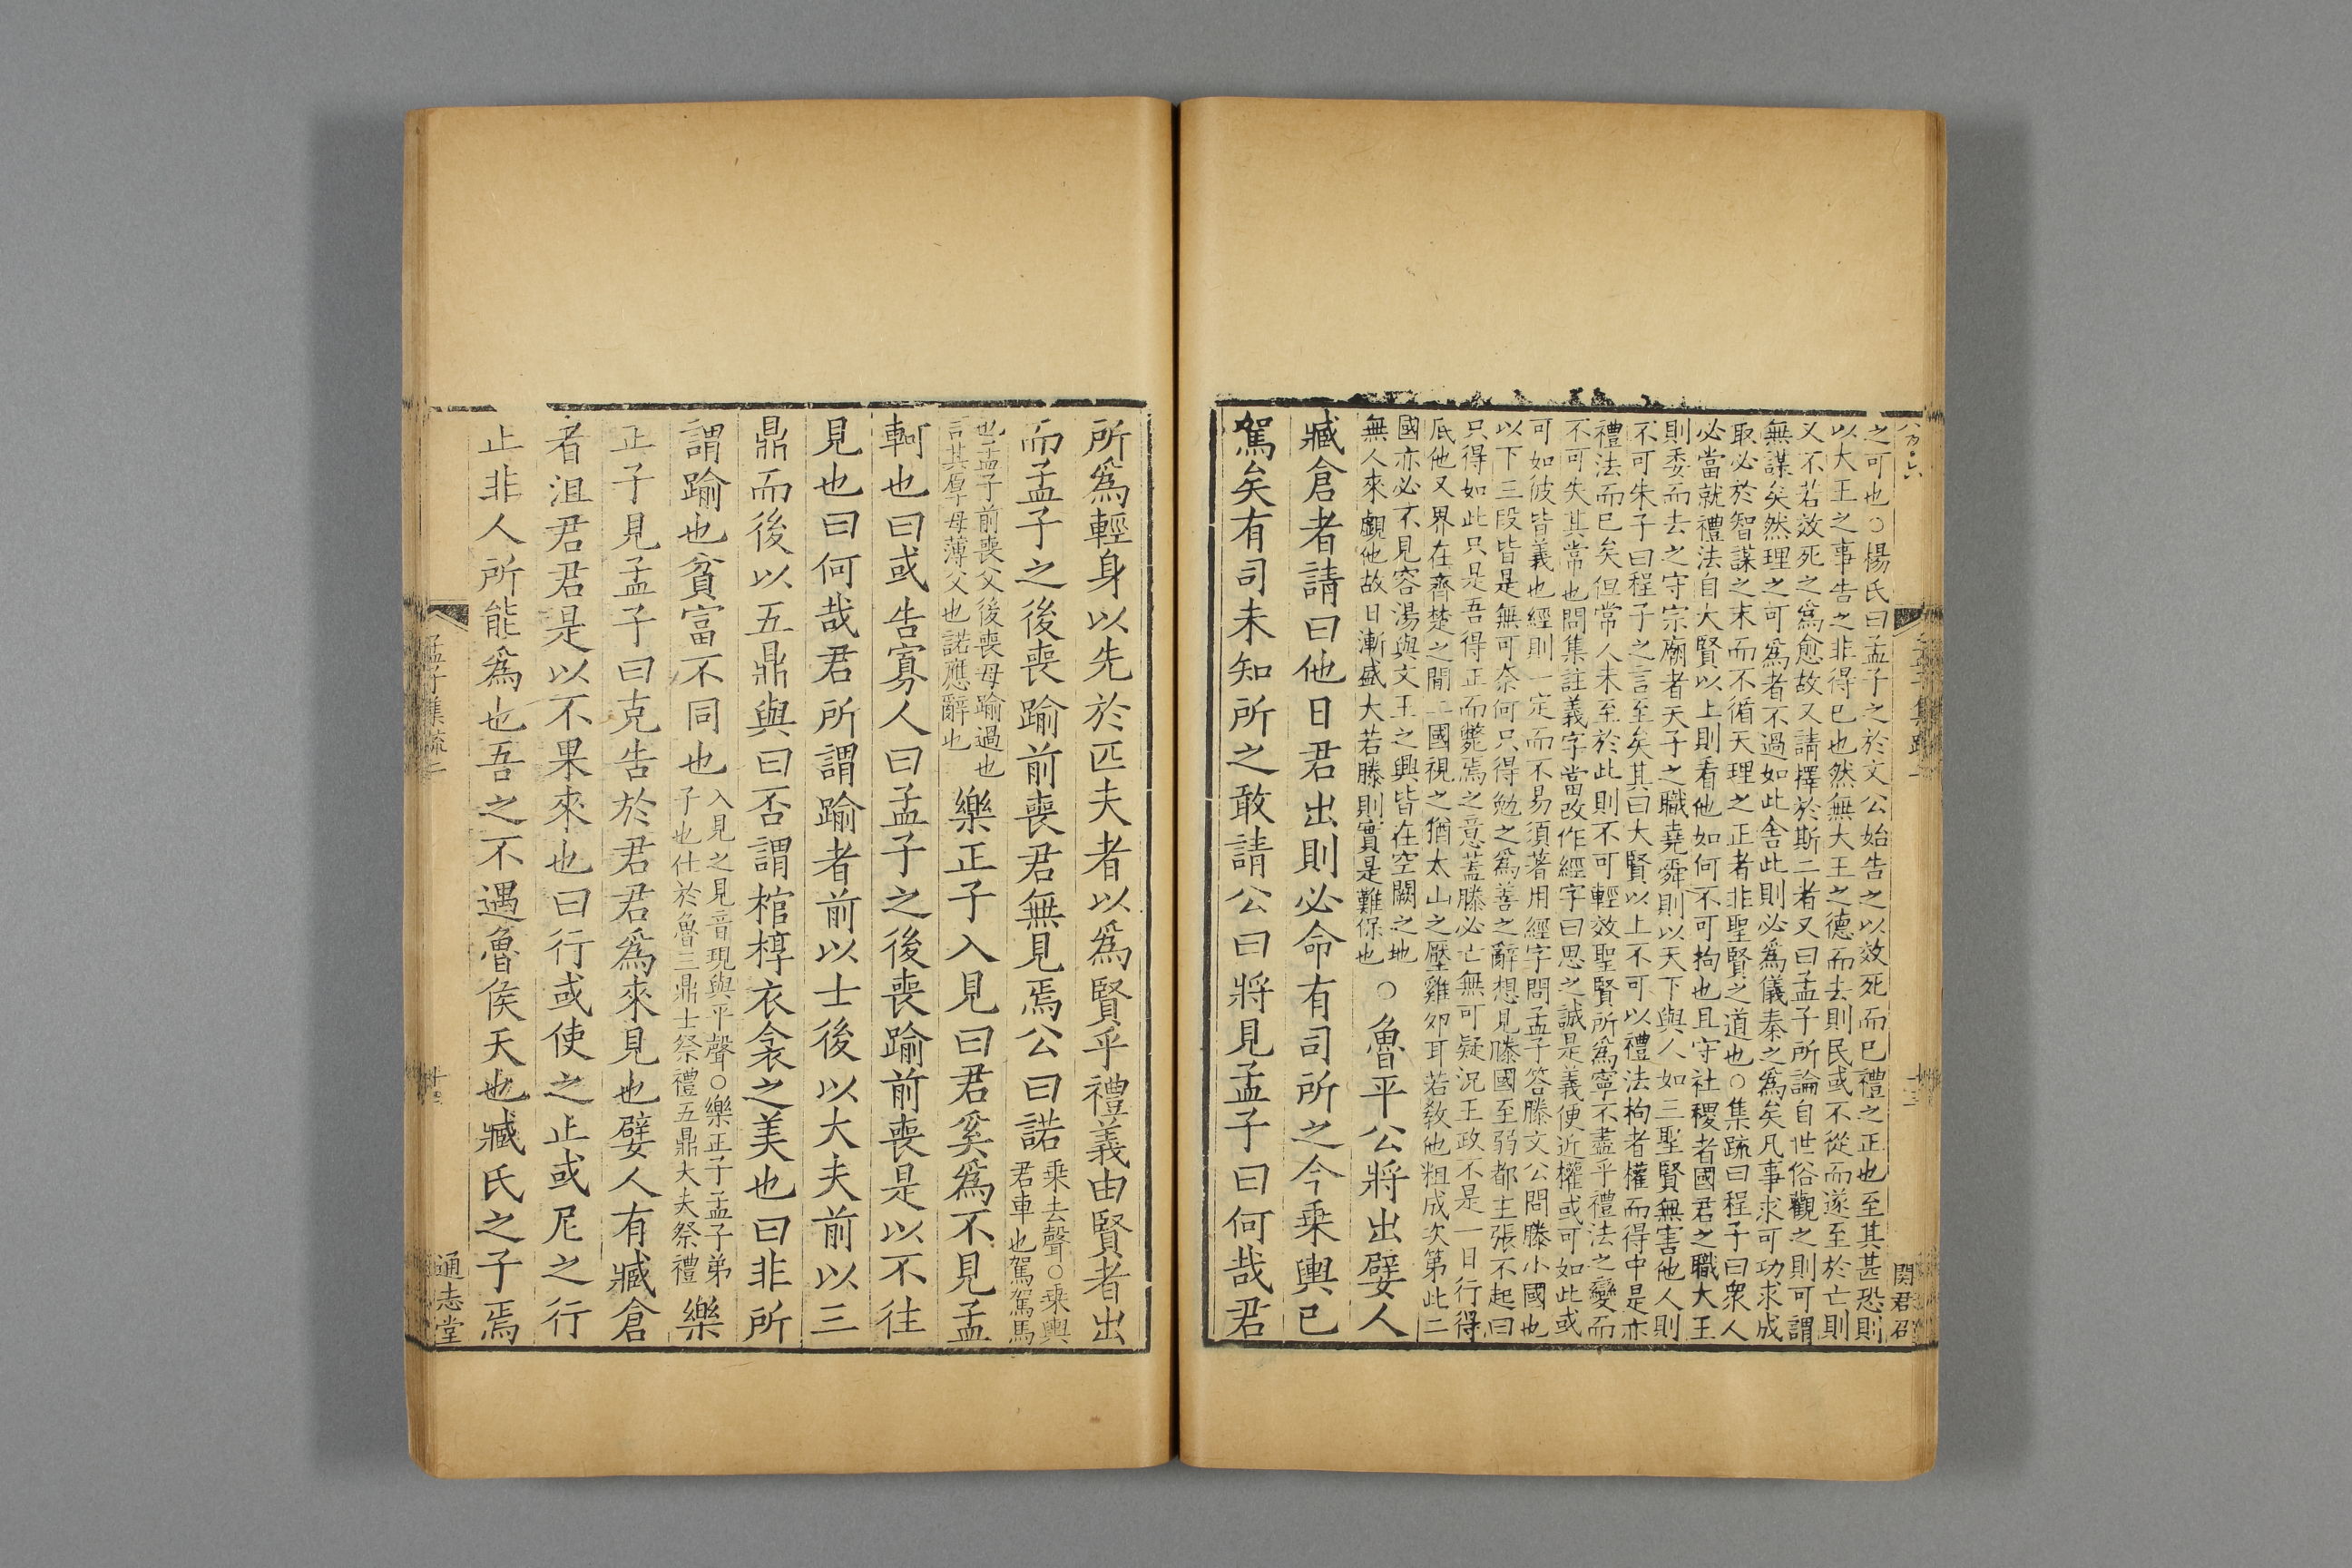 八百六
孟子集疏二
十三
関君召
之可也○楊氏曰孟子之於文公始告之以效死而已禮之正也至其甚恐則
以大王之事告之非得已也然無大王之德而去則民或不從而遂至於亡則
又不若效死之爲愈故又請擇於斯二者又曰孟子所論自世俗觀之則可謂
無謀矣然理之可爲者不過如此舍此則必爲儀秦之爲矣凡事求可功求成
取必於智謀之末而不循天理之正者非聖賢之道也○集疏曰程子曰衆人
必當就禮法自大賢以上則看他如何不可拘也且守社稷者國君之職大王
則委而去之守宗廟者天子之職堯舜則以天下與人如三聖賢無害他人則
不可朱子曰程子之言至矣其曰大賢以上不可以禮法拘者權而得中是亦
禮法而已矣但常人未至於此則不可輕效聖賢所爲寧不盡乎禮法之變而
不可失其常也問集註義字當改作經字曰思之誠是義便近權或可如此或
可如彼皆義也經則一定而不易須著用經字問孟子答滕文公問滕小國也
以下三段皆是無可奈何只得勉之爲善之辭想見滕國至弱都主張不起曰
只得如此只是吾得正而斃焉之意蓋滕必亡無可疑況王政不是一日行得
底他又界在齊楚之閒二國視之猶太山之壓雞卵耳若敎他粗成次第此二
國亦必不見容湯與文王之興皆在空闕之地
無人來覰他故日漸盛大若滕則實是難保也
○魯平公將出嬖人
臧倉者請曰他日君出則必命有司所之今乘輿已
駕矣有司未知所之敢請公曰將見孟子曰何哉君
所爲輕身以先於匹夫者以爲賢乎禮義由賢者出
而孟子之後喪踰前喪君無見焉公曰諾
乘去聲○乘輿
君車也駕駕馬
也孟子前喪父後喪母踰過也
言其厚母薄父也諾應辭也
樂正子入見曰君奚爲不見孟
軻也曰或告寡人曰孟子之後喪踰前喪是以不往
見也曰何哉君所謂踰者前以士後以大夫前以三
鼎而後以五鼎與曰否謂棺椁衣衾之美也曰非所
謂踰也貧富不同也
入見之見音現與平聲○樂正子孟子弟
子也仕於魯三鼎士祭禮五鼎大夫祭禮
樂
正子見孟子曰克告於君君爲來見也嬖人有臧倉
者沮君君是以不果來也曰行或使之止或尼之行
止非人所能爲也吾之不遇魯侯天也臧氏之子焉
孟子集疏二
十三
通志堂